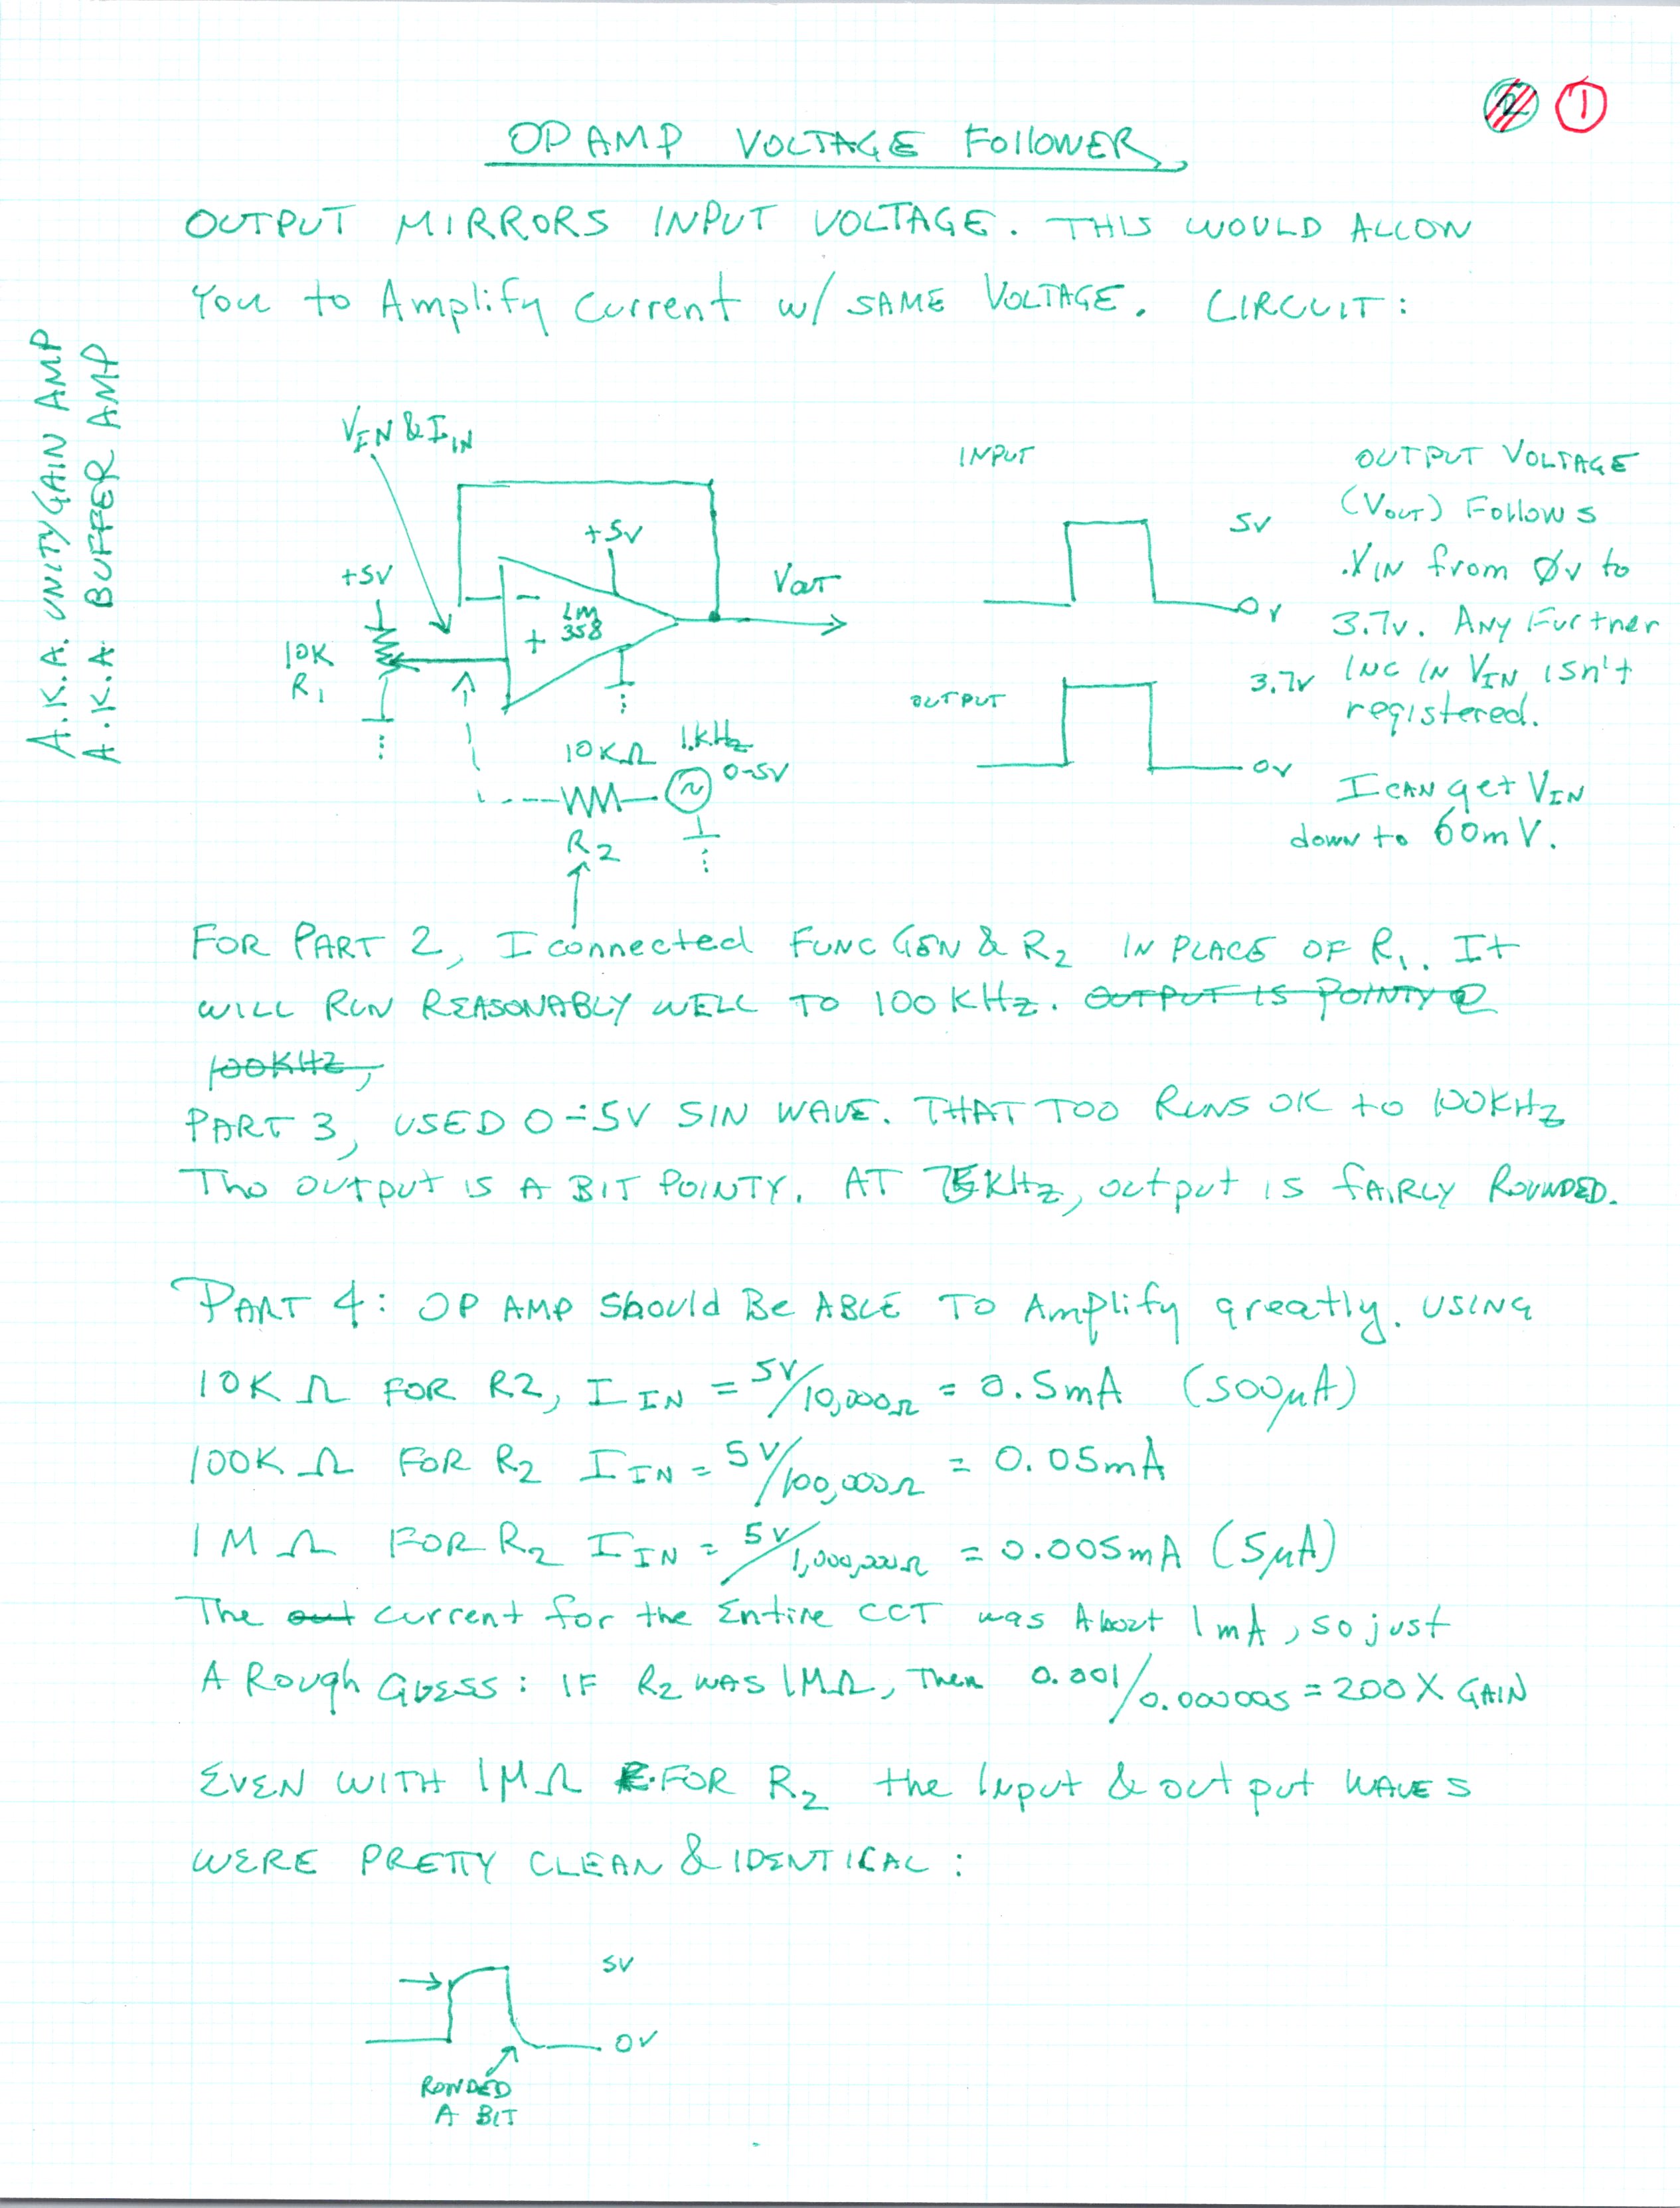 2 1
OP AMP VOLTAGE FOLLOWER
OUTPUT MIRRORS INPUT VOLTAGE. THIS WOULD ALLOW
You to Amplify Current w/ SAME VOLTAGE. CIRCUIT:
A.K.A. UNITY GAIN AMP
A.K.A BUFFER AMP
VIN & IIN
+5V
+5V
10K
R1
-
+
LM
358
Vout
10KΩ
R2
1.kHz
0-5V
INPUT
5V
0V
OUTPUT
3.7V
0V
OUTPUT VOLTAGE
(VOUT) Follows
.VIN from Øv to
3.7v. Any Further
INC IN VIN isn't
registered.
I CAN get VIN
down to 60mV.
FOR PART 2, I connected FUNC GEN & R2 IN PLACE OF R1. It
WILL RUN REASONABLY WELL TO 100KHz. OUTPUT IS POINTY @
100KHZ,
PART 3, USED 0-5V SIN WAVE. THAT TOO RUNS OK to 100KHz
Tho output is A BIT POINTY. AT 75KHz, output is fairly Rounded.
PART 4: OP AMP Should Be ABLE TO Amplify greatly. USING
10KΩ FOR R2, IIN = 5V/10,000Ω = 0.5mA (500µA)
100KΩ FOR R2 IIN = 5V/100,000Ω = 0.05mA
1MΩ FOR R2 IIN = 5V/1,000,000Ω = 0.005mA (5µA)
The out current for the Entire CCT was About 1mA, so just
A Rough Guess: IF R2 WAS 1MΩ, Then 0.001/0.000005 = 200 X GAIN
EVEN WITH 1MΩ FOR R2 the Input & output WAVES
WERE PRETTY CLEAN & IDENTICAL:
5V
0V
RONDED
A BIT